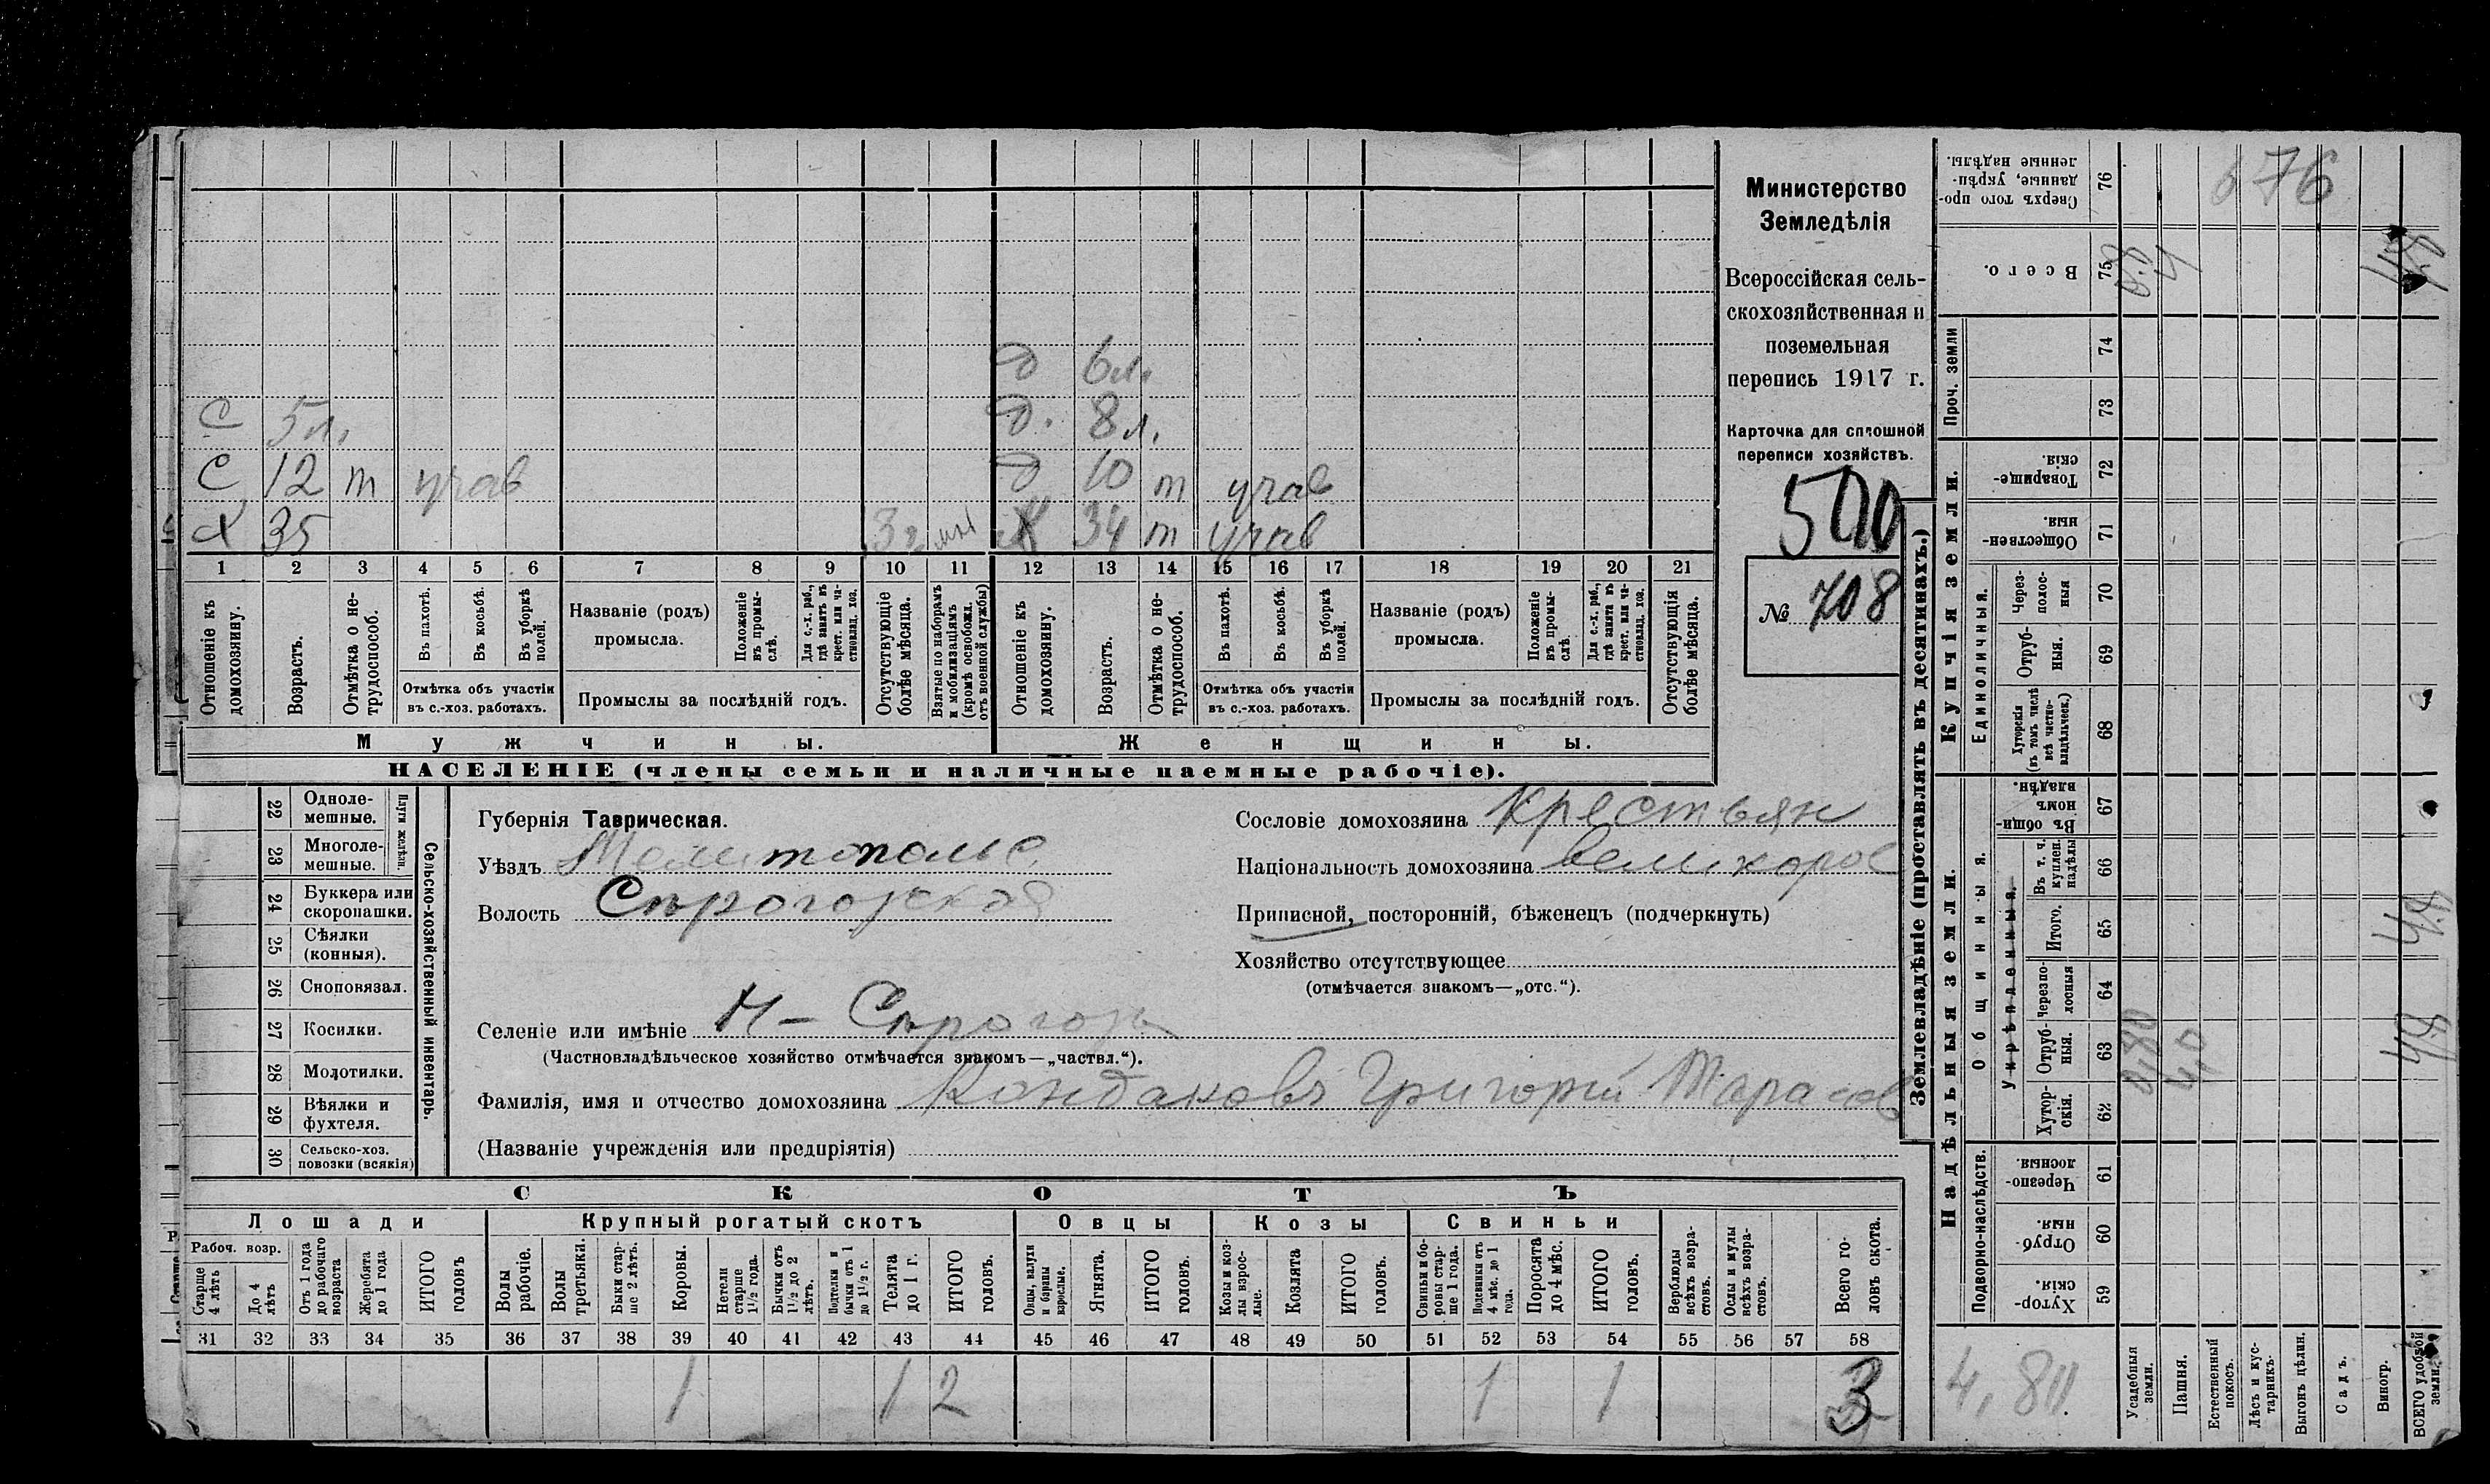 С 5 л.
С 12 т учав
Х 35 3 г
д 6 л.
д. 8 л.
д 10 т учав
Ж 34 т учав
1 2 3 4 5 6 7 8 9 10 11 12 13 14 15 16 17 18 19 20 21
Отношеніе къ домохозяину.
Возрастъ.
Отмѣтка о нетрудоспособ.
Въ пахотѣ.
Въ косьбѣ.
Въ уборкѣ полей.
Отмѣтка объ участіи въ с.-хоз. работахъ.
Названіе (родъ) промысла.
Положеніе въ промыслѣ.
Для с.-х. раб., гдѣ занятъ въ крест. или частновлад. хоз.
Промыслы за послѣдній годъ.
Отсутствующіе болѣе мѣсяца.
Взятые по наборамъ и мобилизаціямъ (кромѣ освобожд. отъ военной службы)
Отношеніе къ домохозяину.
Возрастъ.
Отмѣтка о нетрудоспособ.
Въ пахотѣ.
Въ косьбѣ.
Въ уборкѣ полей.
Отмѣтка объ участіи въ с.-хоз. работахъ.
Названіе (родъ) промысла.
Положеніе въ промыслѣ
Для с.-х. раб., гдѣ занята въ крест. или частновлад. хоз.
Промыслы за послѣдній годъ.
Отсутствующія болѣе мѣсяца.
Мужчины.
Женщины.
НАСЕЛЕНІЕ (члены семьи и наличные наемные рабочіе).
Министерство
Земледѣлія
Всероссійская сель-
скохозяйственная и
поземельная
перепись 1917 г.
Карточка для сплошной
переписи хозяйствъ.
№ 708
22 Одноле-мешные.
23 Многоле-мешные.
Плуги желѣзн.
24 Буккера или скоропашки.
25 Сѣялки (конныя).
26 Сноповязал.
27 Косилки.
28 Молотилки.
29 Вѣялки и фухтеля.
30 Сельско-хоз. повозки (всякія)
Сельско-хозяйственный инвентарь.
Губернія Таврическая.
Уѣздъ Мелитопольс
Волость Сѣрогозская
Селеніе или имѣніе Н - Сѣрогозы
(Частновладѣльческое хозяйство отмѣчается знакомъ—„частвл.“).
Фамилія, имя и отчество домохозяина Кондаковъ Григорій Тарасов
(Названіе учрежденія или предпріятія)
Сословіе домохозяина Крестьян
Національность домохозяина великорос
Приписной, посторонній, бѣженецъ (подчеркнуть)
Хозяйство отсутствующее
(отмѣчается знакомъ—„отс.“).
СКОТЪ
Лошади
Крупный рогатый скотъ
Овцы
Козы
Свиньи
Рабоч. возр.
Старше 4 лѣтъ
До 4 лѣтъ
Отъ 1 года до рабочаго возраста
Жеребята до 1 года
ИТОГО головъ
Волы рабочіе.
Волы третьяки.
Быки старше 2 лѣтъ.
Коровы.
Нетели старше 1½ года.
Бычки отъ 1½ до 2 лѣтъ.
Подтелки и бычки отъ 1 до 1½ г.
Телята до 1 г.
ИТОГО головъ.
Овцы, валухи и бараны взрослые.
Ягнята.
ИТОГО головъ.
Козы и козлы взрослые.
Козлята
ИТОГО головъ.
Свиньи и боровы старше 1 года.
Подсвинки отъ 4 мѣс. до 1 года.
Поросята до 4 мѣс.
ИТОГО головъ.
Верблюды всѣхъ возрастовъ.
Ослы и мулы всѣхъ возрастовъ.
Всего головъ скота.
31 32 33 34 35 36 37 38 39 40 41 42 43 44 45 46 47 48 49 50 51 52 53 54 55 56 57 58
1 1 2 1 1 3
Землевладѣніе (проставлять въ десятинахъ.)
Сверхъ того проданные, укрѣпленные надѣлы. 76
Всего. 75
Проч. земли 74 73
Купчія земли.
Товарищескія. 72
Общественныя. 71
Единоличныя.
Через-полосныя 70
Отруб-ныя. 69
Хуторскія (въ томъ числѣ всѣ частновладѣльческ.) 68
Надѣльныя земли.
Общинныя.
Въ общинномъ владѣн. 67
Укрѣпленныя.
Въ т. ч. куплен. надѣлы 66
Итого. 65
Черезполосныя 64
Отруб-ныя. 63
Хутор-скія. 62
Подворно-наслѣдств.
Черезпо-лосныя. 61
Отруб-ныя. 60
Хутор-скія. 59
676
4,80
Усадебныя земли.
Пашня.
Естественный покосъ.
Лѣсъ и кустарникъ.
Выгонъ цѣлин.
Садъ.
Виногр.
ВСЕГО удобной земли.